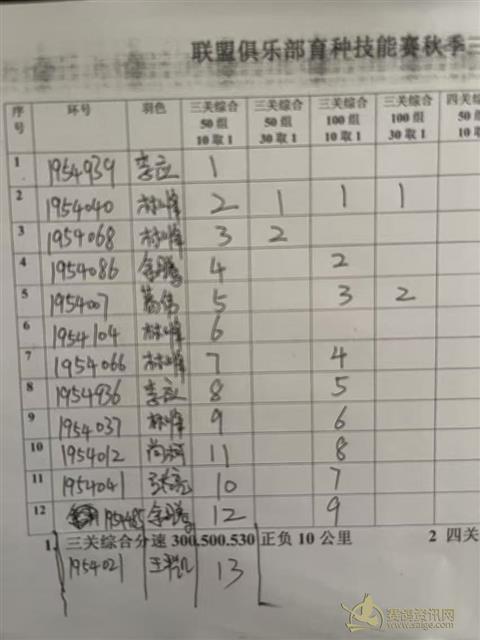 联盟俱乐部育种技能赛秋季三
序号 环号 羽色 三关综合50组10取1 三关综合50组30取1 三关综合100组10取1 三关综合100组30取1 四关综合50组10取
1 1954939 1
2 1954040 林峰 2 1 1 1
3 1954068 林峰 3 2
4 1954086 4 2
5 1954007 5 3 2
6 1954104 林峰 6
7 1954066 林峰 7 4
8 1954936 8 5
9 1954037 林峰 9 6
10 1954012 尚珂 11 8
11 1954041 张亮 10 7
12 12 9
1 三关综合分速 300.500.530 正负 10 公里 2 四关
1954021 13
赛鸽资讯网
www.saige.com